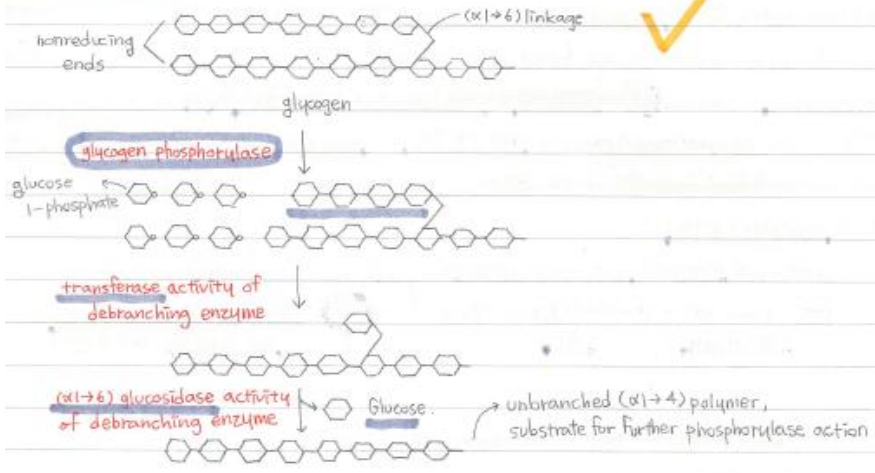 (α1→6) linkage
nonreducing
ends
glycogen
glycogen phosphorylase
glucose
1-phosphate
transferase activity of
debranching enzyme
(α1→6) glucosidase activity
of debranching enzyme
Glucose.
→ unbranched (α1→4) polymer,
substrate for further phosphorylase action